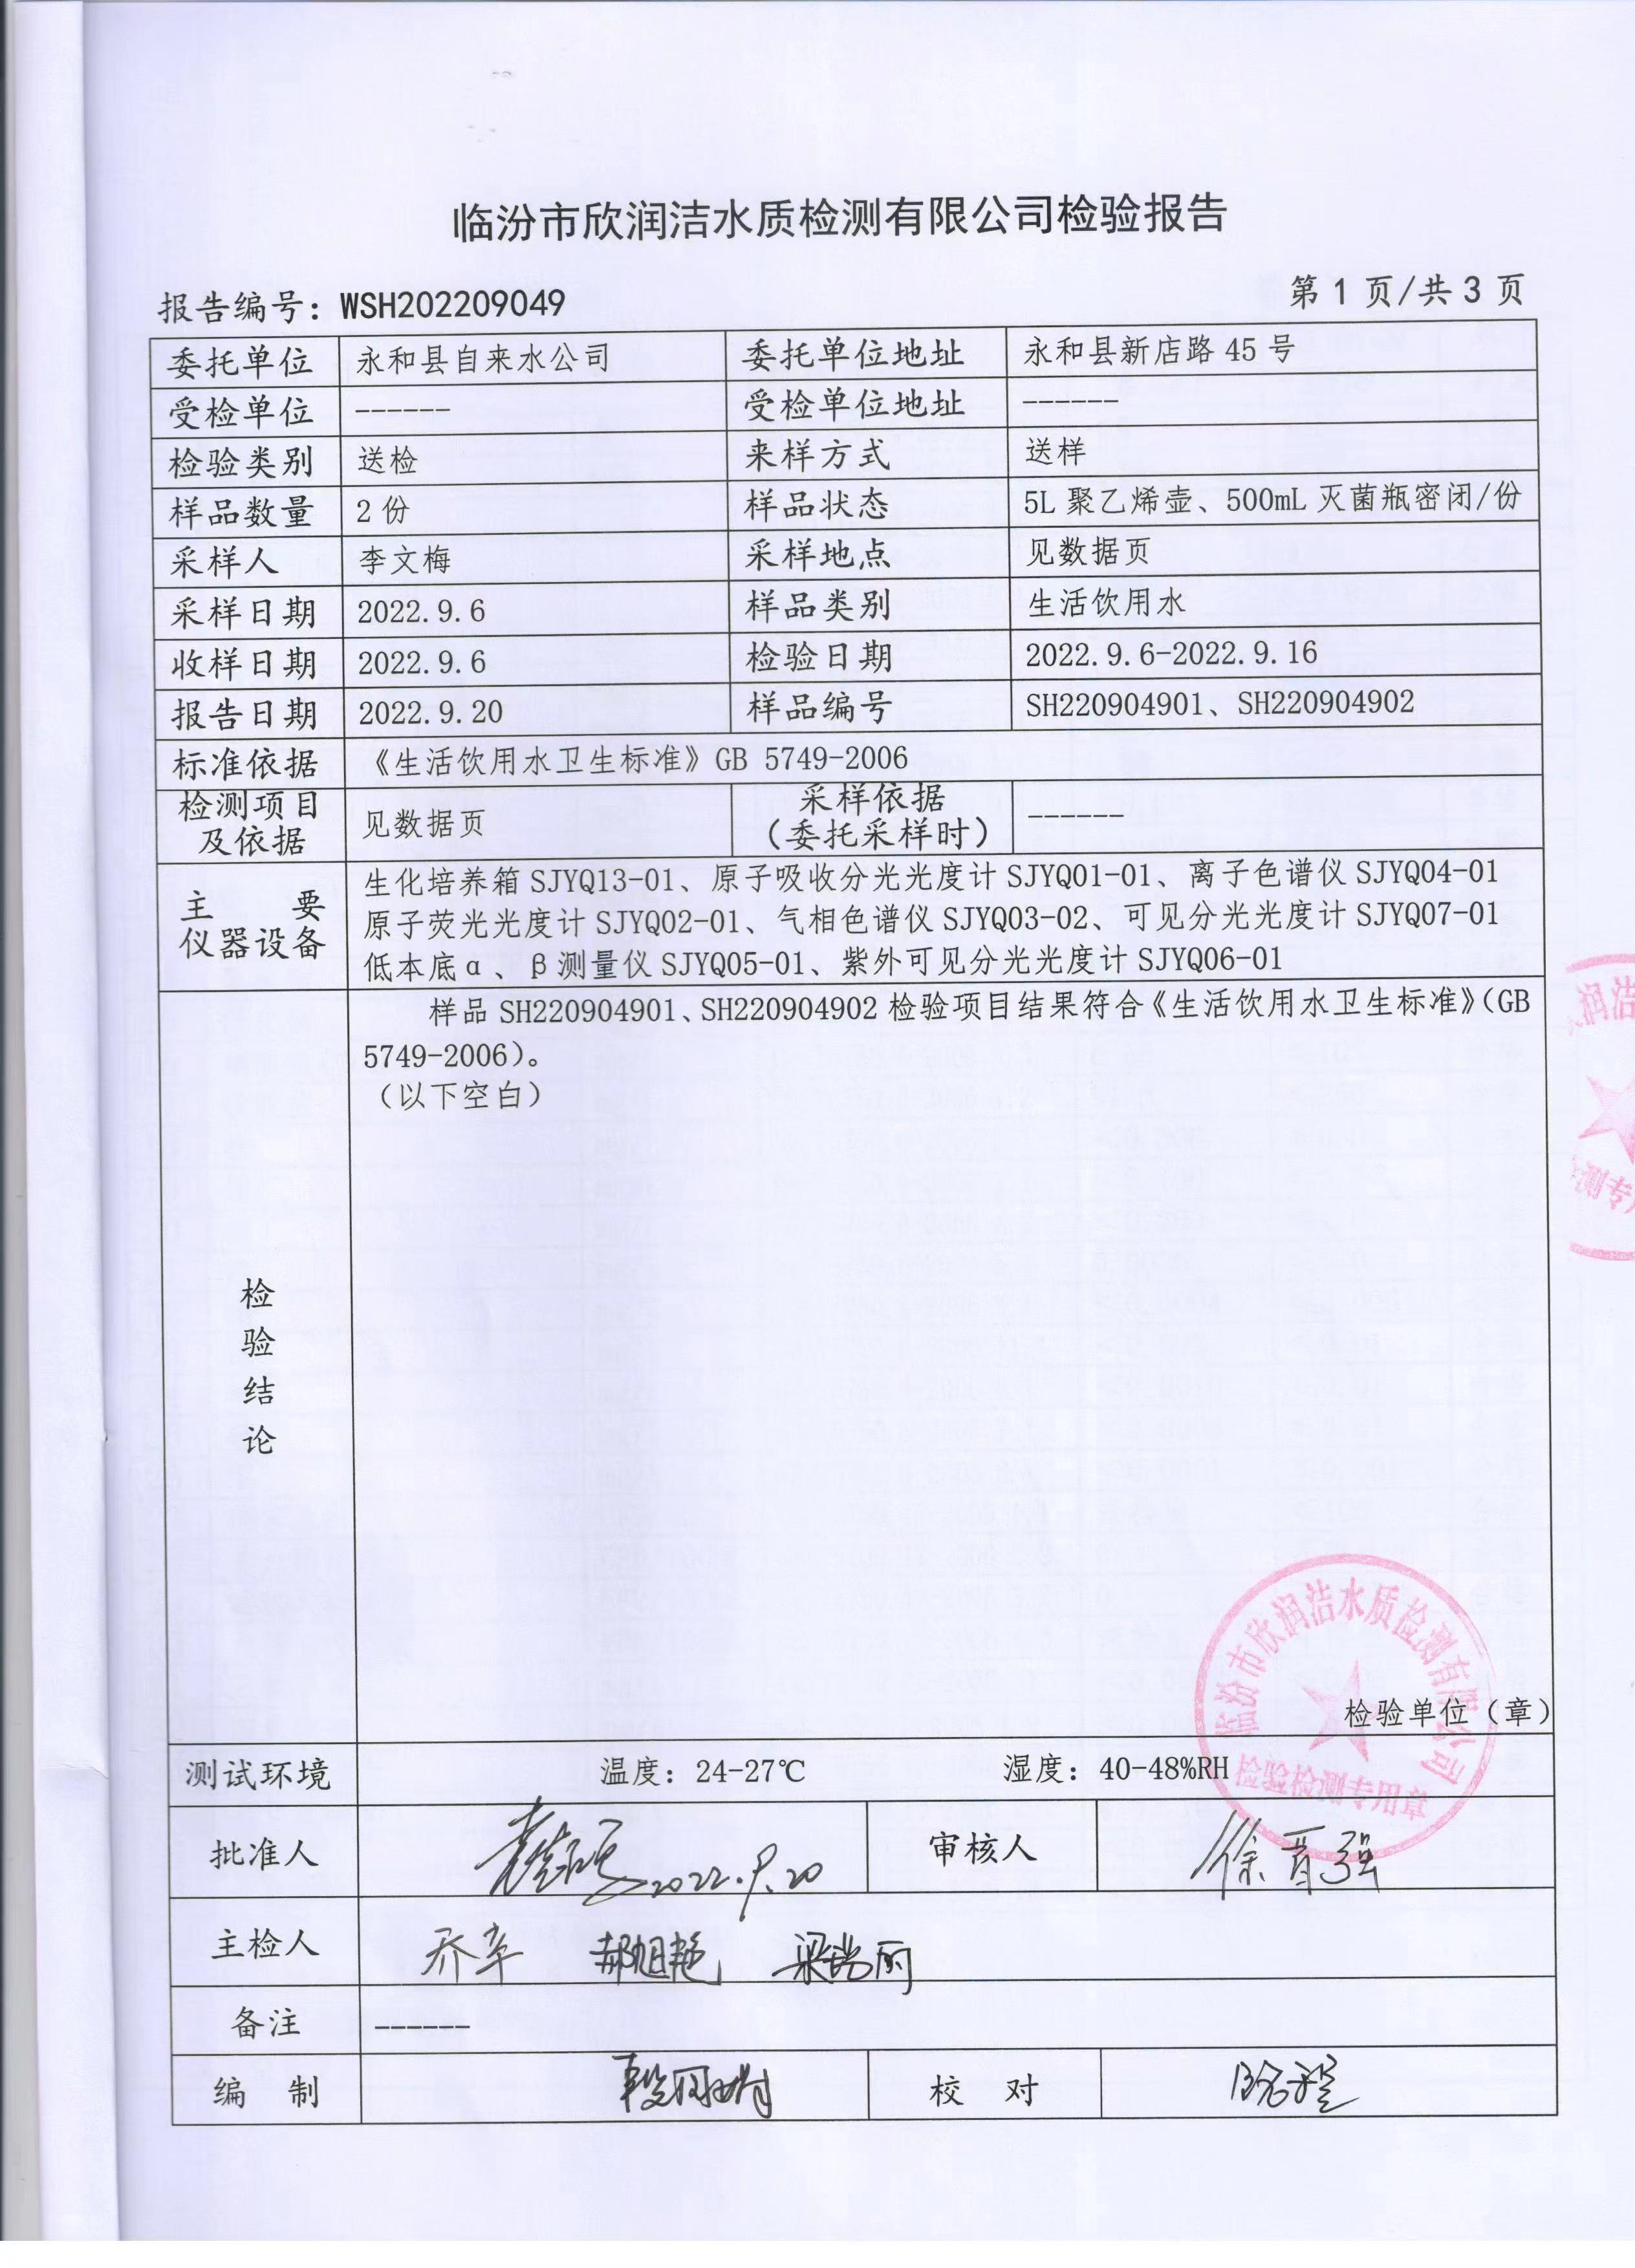 临汾市欣润洁水质检测有限公司检验报告
报告编号：WSH202209049
第 1 页/共 3 页
委托单位 永和县自来水公司 委托单位地址 永和县新店路 45 号
受检单位 ------ 受检单位地址 ------
检验类别 送检 来样方式 送样
样品数量 2 份 样品状态 5L 聚乙烯壶、500mL 灭菌瓶密闭/份
采样人 李文梅 采样地点 见数据页
采样日期 2022.9.6 样品类别 生活饮用水
收样日期 2022.9.6 检验日期 2022.9.6-2022.9.16
报告日期 2022.9.20 样品编号 SH220904901、SH220904902
标准依据 《生活饮用水卫生标准》GB 5749-2006
检测项目
及依据
见数据页
采样依据
（委托采样时）
------
主 要
仪器设备
生化培养箱 SJYQ13-01、原子吸收分光光度计 SJYQ01-01、离子色谱仪 SJYQ04-01
原子荧光光度计 SJYQ02-01、气相色谱仪 SJYQ03-02、可见分光光度计 SJYQ07-01
低本底α、β测量仪 SJYQ05-01、紫外可见分光光度计 SJYQ06-01
检
验
结
论
样品 SH220904901、SH220904902 检验项目结果符合《生活饮用水卫生标准》（GB
5749-2006）。
（以下空白）
检验单位（章）
临汾市欣润洁水质检测有限公司
检验检测专用章
润洁
测专
测试环境 温度：24-27℃ 湿度：40-48%RH
批准人 2022.9.20 审核人 徐晋强
主检人 乔幸 郝旭艳
备注 ------
编 制 校 对